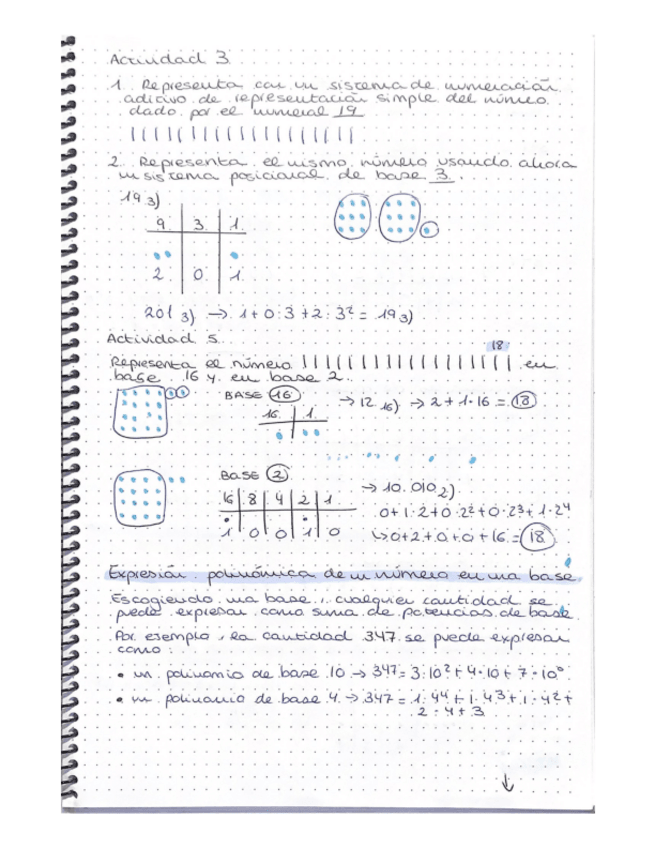 Actividad 3
1. Representa con un sistema de numeración
aditivo de representación simple del número
dado por el numeral 19
| | | | | | | | | | | | | | | | | | |
2. Representa el mismo número usando ahora
un sistema posicional de base 3.
19 3)
9 3 1
2 0 1
201 3) → 1+0·3+2·3² = 19 3)
Actividad 5.
18
Representa el número | | | | | | | | | | | | | | | | | | en
base 16 y en base 2.
BASE 16
16 1
→ 12 16) → 2+1·16 = 18
BASE 2
16 8 4 2 1
1 0 0 1 0
→ 10.010 2)
0+1·2+0·2²+0·2³+1·2⁴
↳ 0+2+0+0+16 = 18
Expresión polinómica de un número en una base
Escogiendo una base, cualquier cantidad se
puede expresar como suma de potencias de base.
Por ejemplo, la cantidad 347 se puede expresar
como:
• un polinomio de base 10 → 347 = 3·10²+4·10+7·10⁰
• un polinomio de base 4 → 347 = 1·4⁴+1·4³+1·4²+
2·4+3
↓